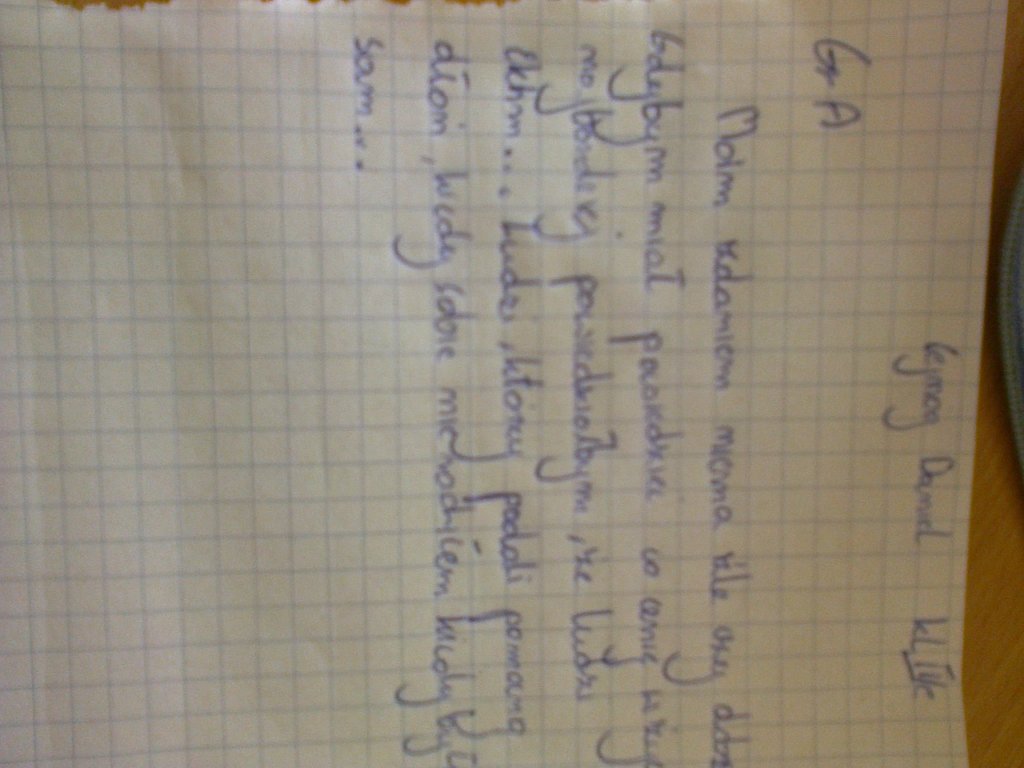 Daniel kl. IIc
Gr A
Moim zdaniem niema źle czy dobrze
Gdybym miał powiedzieć co cenię w życiu
najbardziej powiedziałbym, że ludzi
Ekhm.... Ludzi, którzy podali pomocną
dłoń, kiedy sobie nie radziłem kiedy był
sam...